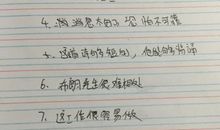 4. 消息大的了 恐怕不可靠
5. 这首诗的短句,
6. 布朗先生很难相处
7. 这工作很容易做